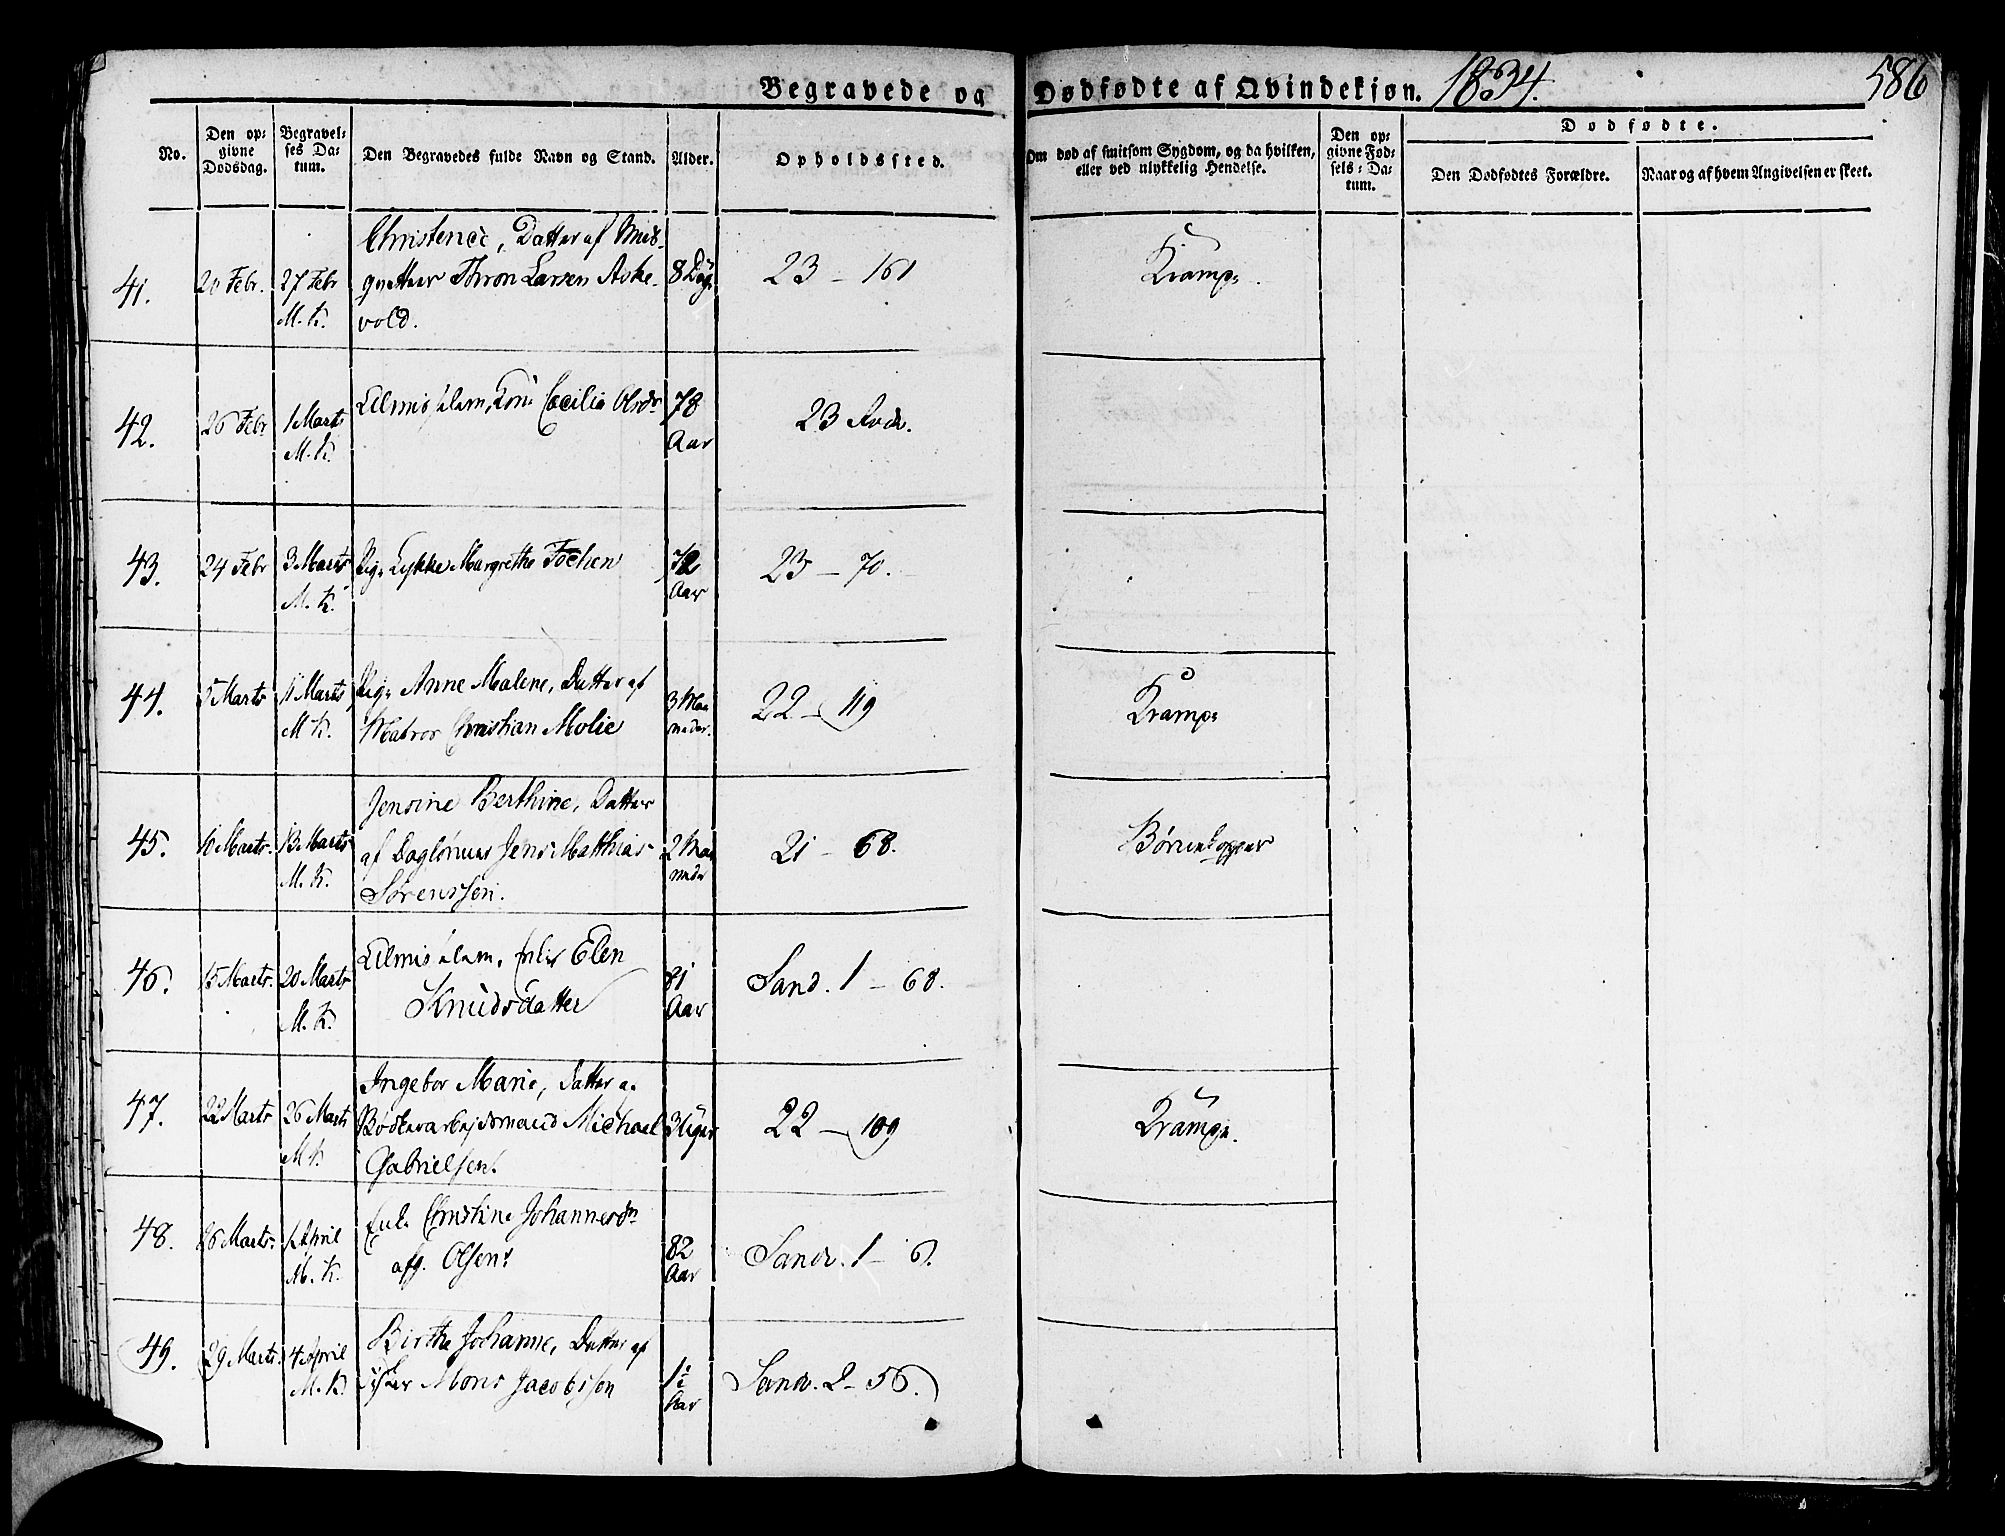 Begravede og Dødfødte af Qvindekjøn. 1834. 586
No.
Den op-
givne
Dødsdag.
Begravel-
ses Da-
tum.
Den Begravedes fulde Navn og Stand.
Alder.
Opholdssted.
Om død af smitsom Sygdom, og da hvilken,
eller ved ulykkelig Hendelse.
Den op-
givne Fød-
sels-Da-
tum.
Dødfødte.
Den Dødfødtes Forældre.
Naar og af hvem Angivelsen er skeet.
Christence, Datter af
41. 20 Febr. 27 Febr Thron Larsen Aske- 8 Dage 23 - 161 Krampe
M. K. vold.
42. 26 Febr 1 Marts Almislem, Cecilia Olsdr 78 23 Rode.
M. K. Aar
43. 24 Febr 3 Marts Pige Lykke Margrethe 72 23 - 70.
M. K. Aar
44. 5 Marts 11 Marts Pige Anne Malene, Datter af 3 Maa 22 - 119 Krampe
M. K. Matros Christian Molie neder.
Jensine Berthine, Datter
45. 10 Marts. 13 Marts af Dagløner Jens Matthias 2 Maa 21 - 68. Børnekopper
M. K. Sørenssen. neder
46. 15 Marts. 20 Marts Almislem, Elen 81 Sand. 1 - 68.
M. K. Knudsdatter Aar
Ingebor Marie, Datter a.
47. 22 Marts 26 Marts Bødkerarbejdsmand Michael 3 Uger 22 - 109 Krampe.
M. K. Gabrielsen.
48. 26 Marts. 1 April Enke Christine Johannesdr 82 Sandv. 1 - 6.
M. K. afg. Olsen. Aar
Birthe Johanne, Datter af
49. 29 Marts. 4 April Fisker Mons Jacobssen 1½ Sandv. 2 - 56.
M. K. Aar